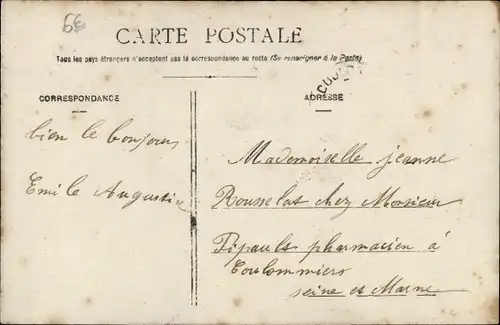 6€
CARTE POSTALE
Tous les pays étrangers n'acceptent pas la correspondance au recto (Se renseigner à la Poste)
CORRESPONDANCE
ADRESSE
bien le bonjour
Emile Augustin
Mademoiselle jeanne
Rousselat chez Monsieur
Pipault pharmacien à
Coulommiers
seine et Marne